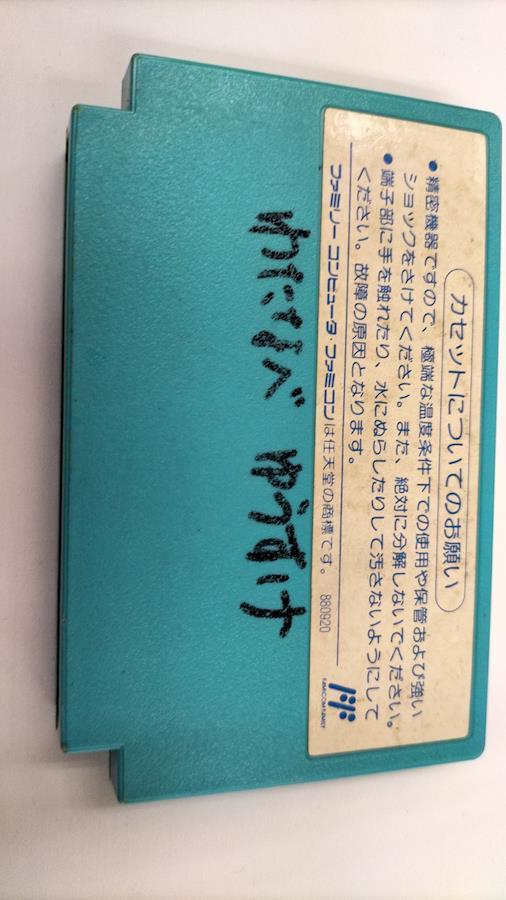 カセットについてのお願い
●精密機器ですので、極端な温度条件下での使用や保管および強い
ショックをさけてください。また、絶対に分解しないでください。
●端子部に手を触れたり、水にぬらしたりして汚さないようにして
ください。故障の原因となります。
ファミリー コンピュータ・ファミコンは任天堂の商標です。 880920
FAMICOM FAMILY
わたなべ ゆうすけ